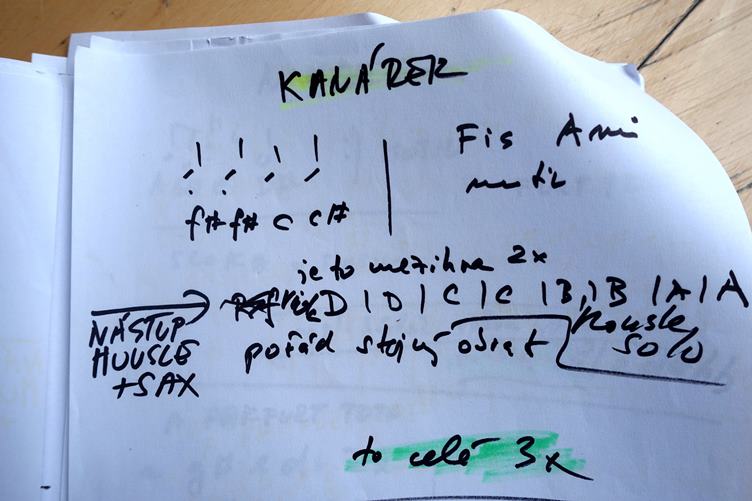 KANÁREK
Fis Ami
f# f# c c#
je to mezihra 2x
D | D | C | C | B | B | A | A
NÁSTUP
HOUSLE
+SAX
pořád stejný obrat
housle
solo
to celé 3x